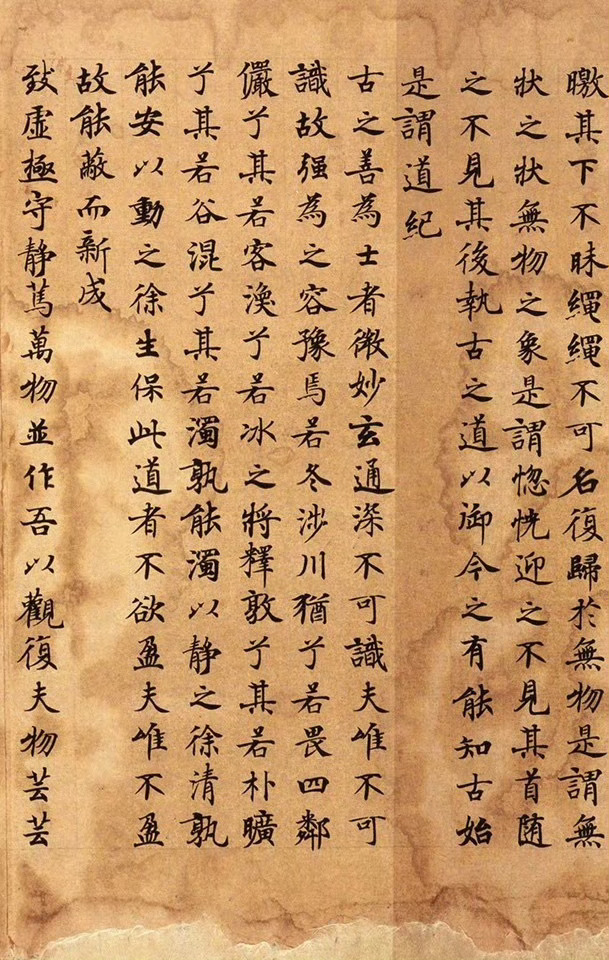 曒其下不昧繩繩不可名復歸於無物是謂無
狀之狀無物之象是謂惚恍迎之不見其首随
之不見其後執古之道以御今之有能知古始
是謂道紀
古之善為士者微妙玄通深不可識夫唯不可
識故强為之容豫焉若冬涉川猶兮若畏四鄰
儼兮其若客渙兮若冰之將釋敦兮其若朴曠
兮其若谷混兮其若濁孰能濁以静之徐清孰
能安以動之徐生保此道者不欲盈夫唯不盈
故能蔽而新成
致虚極守静篤萬物並作吾以觀復夫物芸芸